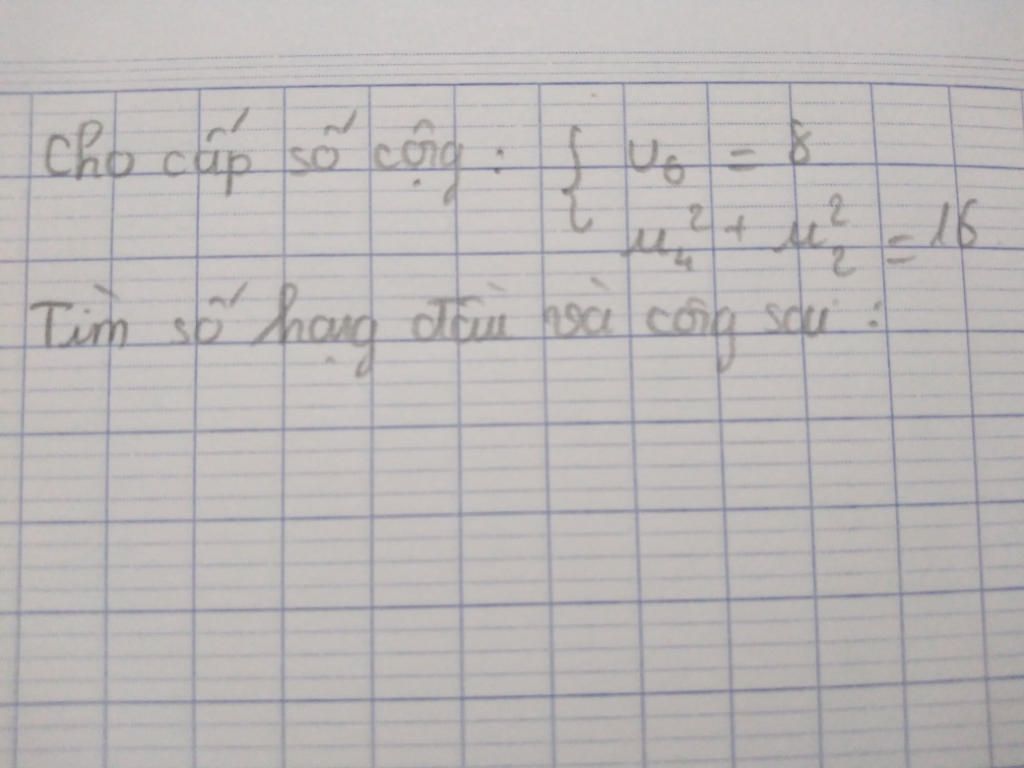 Cho cấp số cộng : { u₆ = 8
u₄² + u₂² = 16
Tìm số hạng đầu và công sai :